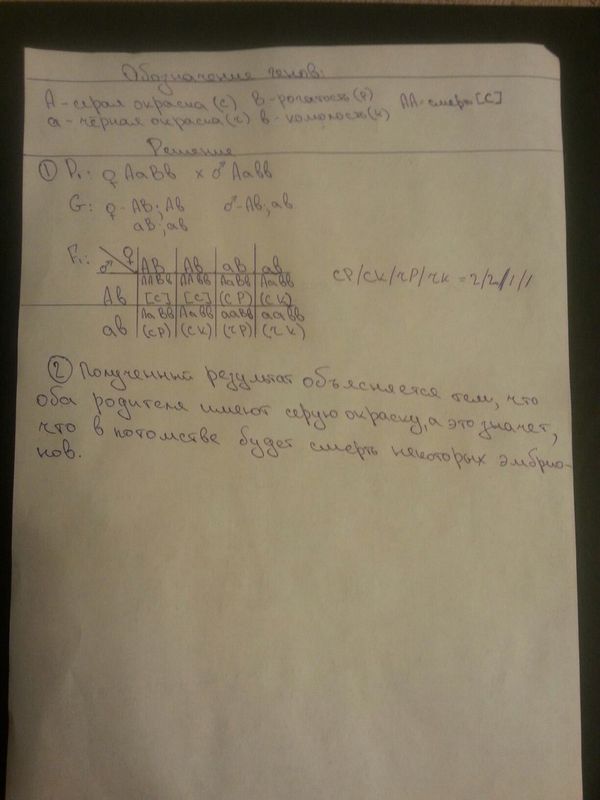 Обозначение генов:
А - серая окраска (с) В - рогатость (р) АА - смерть [С]
а - чёрная окраска (ч) в - комолость (к)
Решение
① P₁: ♀ АаВв × ♂ Аавв
G: ♀ - АВ; Ав ♂ - Ав; ав
аВ; ав
F₁: ♂ ♀ АВ Ав аВ ав
ААВв ААвв АаВв Аавв
Ав [С] [С] (СР) (СК)
АаВв Аавв ааВв аавв
ав (СР) (СК) (ЧР) (ЧК)
СР/СК/ЧР/ЧК = 2/2/1/1
② Полученный результат объясняется тем, что
оба родителя имеют серую окраску, а это значет,
что в потомстве будет смерть некоторых эмбрио-
нов.